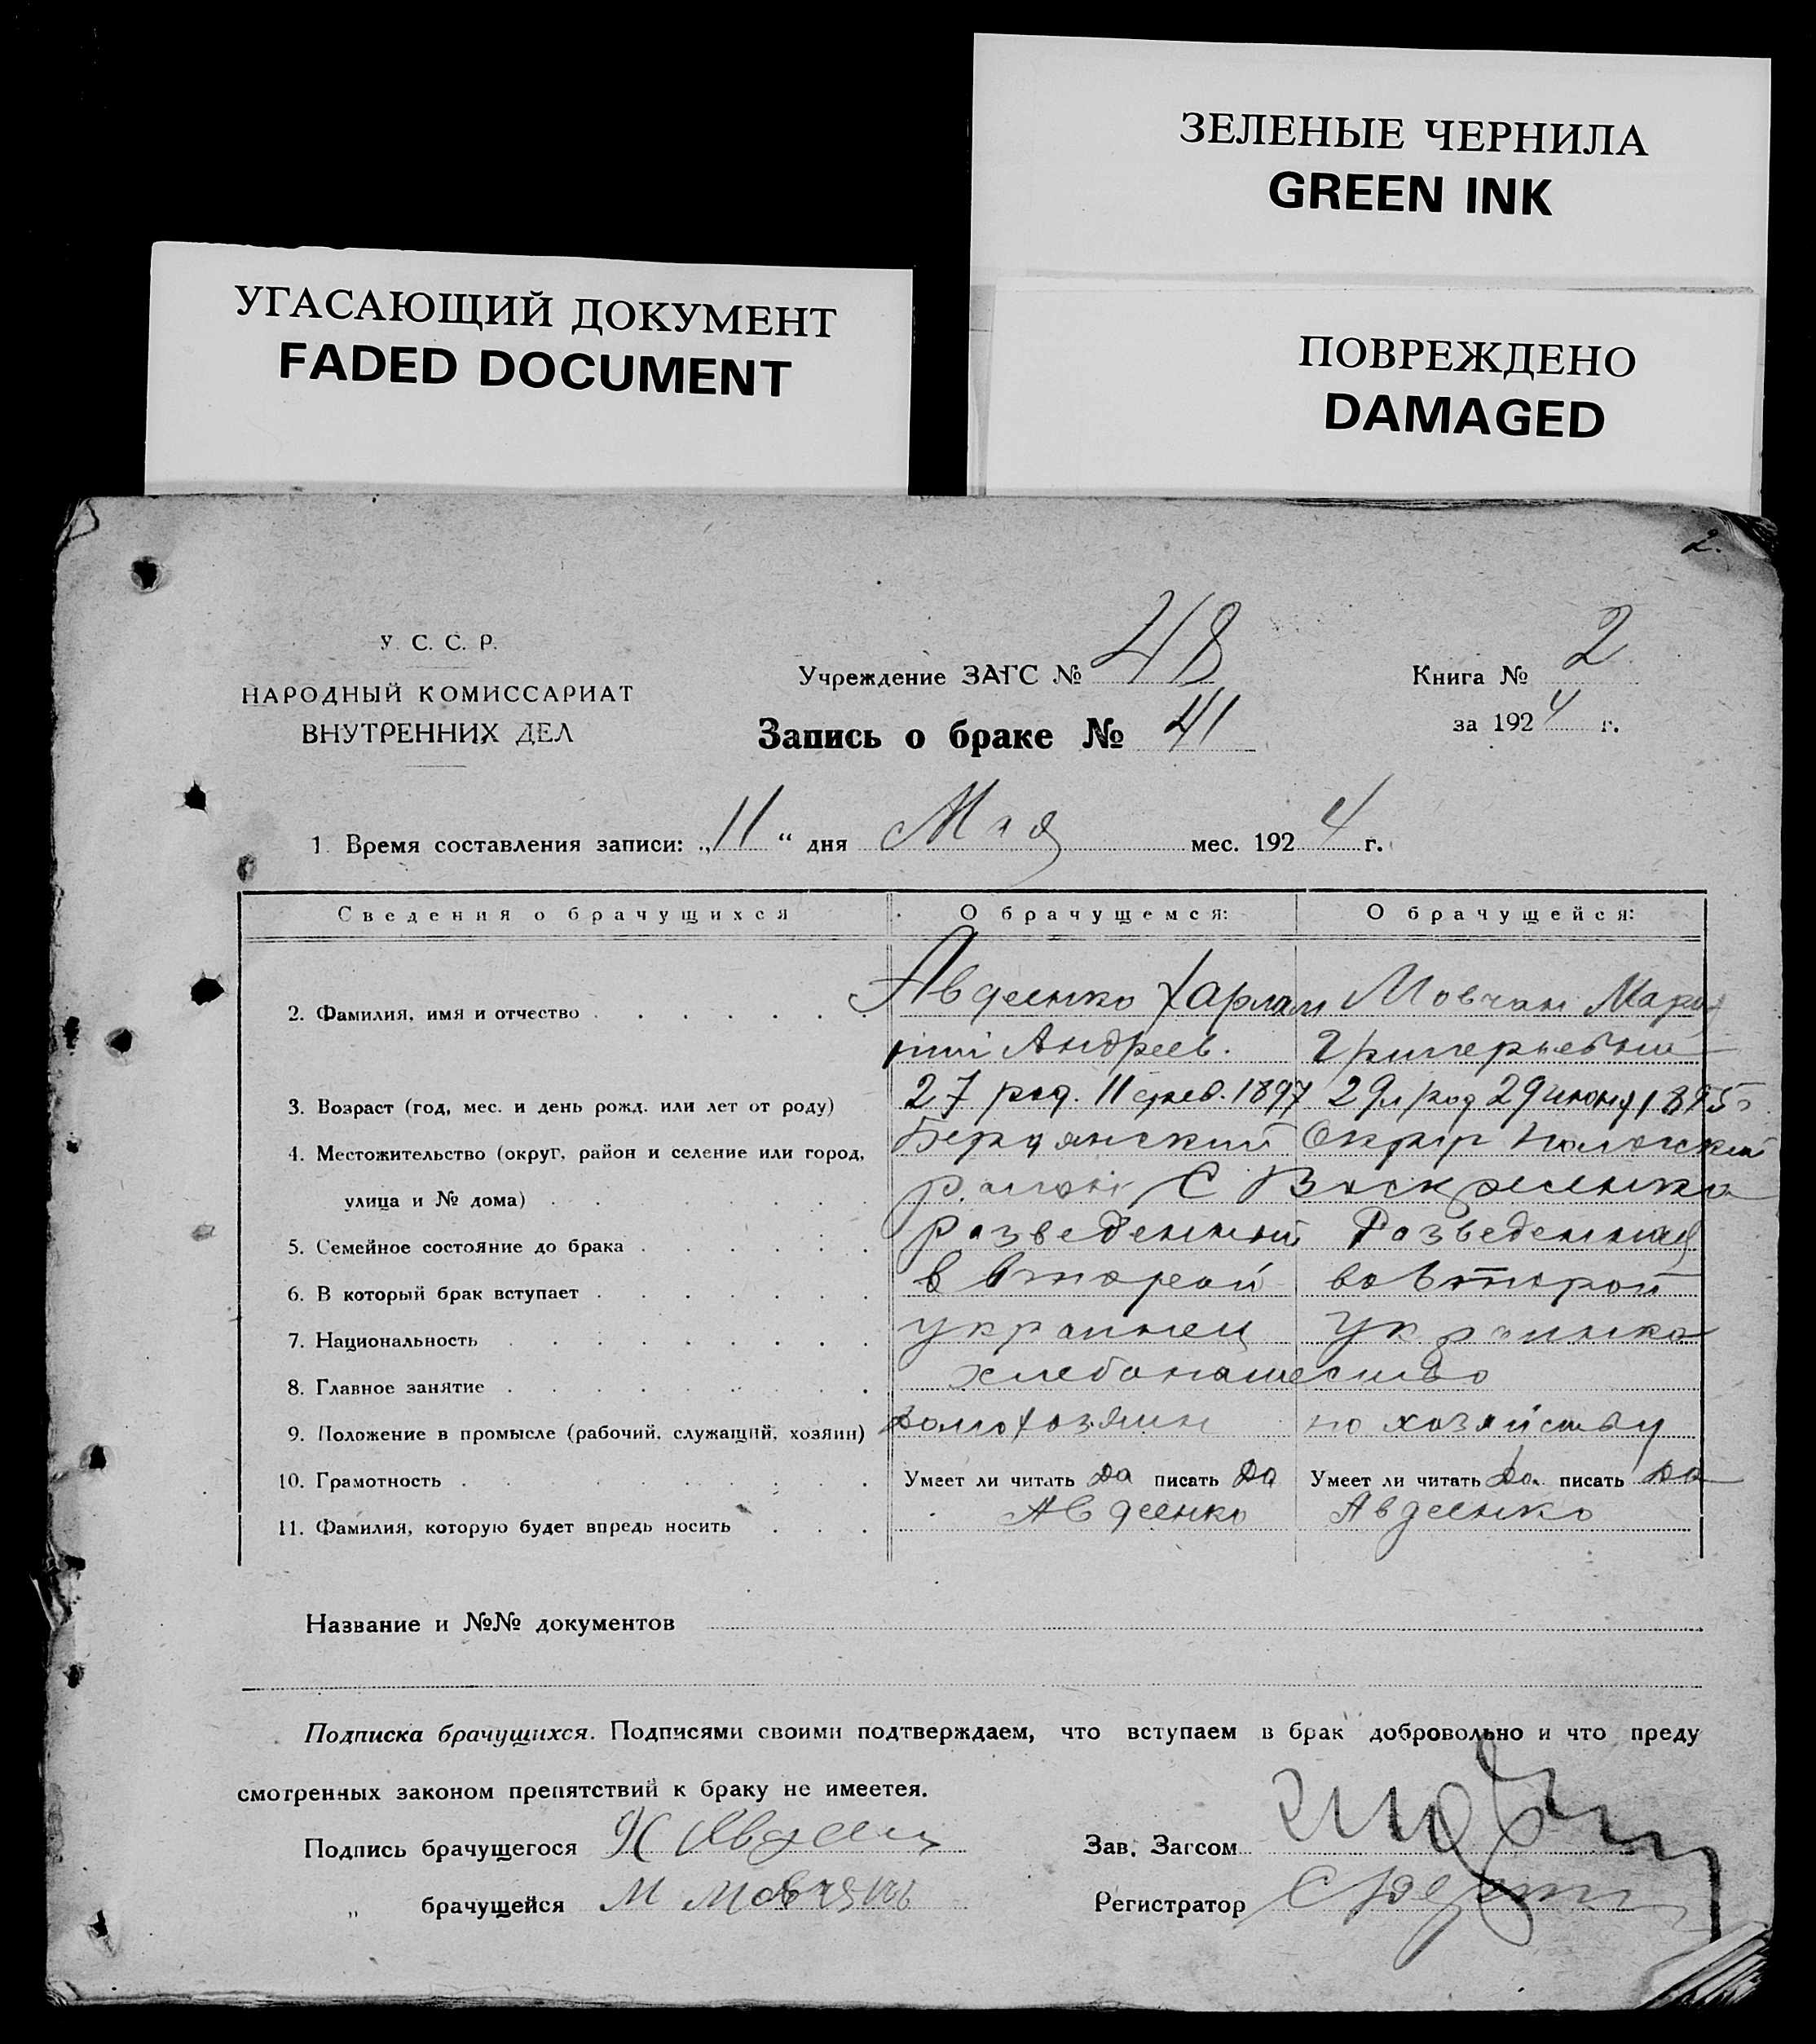 ЗЕЛЕНЫЕ ЧЕРНИЛА
GREEN INK
УГАСАЮЩИЙ ДОКУМЕНТ
FADED DOCUMENT
ПОВРЕЖДЕНО
DAMAGED
2.
У. С. С. Р.
НАРОДНЫЙ КОМИССАРИАТ
ВНУТРЕННИХ ДЕЛ
Учреждение ЗАГС № 48
Книга № 2
Запись о браке № 41
за 1924 г.
1. Время составления записи: „11“ дня Мая мес. 1924 г.
Сведения о брачущихся О брачущемся: О брачущейся:
2. Фамилия, имя и отчество Авдеенко Харлам Мовчан Мария
пий Андреев. Григорьевны
3. Возраст (год, мес. и день рожд. или лет от роду) 27 род. 11 фев. 1897 29 л род 29 июня 1895
4. Местожительство (округ, район и селение или город, Бердянский Округ Пологский
улица и № дома) район С Воскресенка
5. Семейное состояние до брака разведенный Розведенная
6. В который брак вступает в второй во второй
7. Национальность украинец украинка
8. Главное занятие хлебопашество
9. Положение в промысле (рабочий, служащий, хозяин) домохозяин по хозяйству
10. Грамотность Умеет ли читать Да писать Да Умеет ли читать Да писать Да
11. Фамилия, которую будет впредь носить Авдеенко Авдеенко
Название и №№ документов
Подписка брачущихся. Подписями своими подтверждаем, что вступаем в брак добровольно и что преду
смотренных законом препятствий к браку не имеетея.
Подпись брачущегося Х Авдеен
Зав. Загсом
„ брачущейся М Мовчан
Регистратор